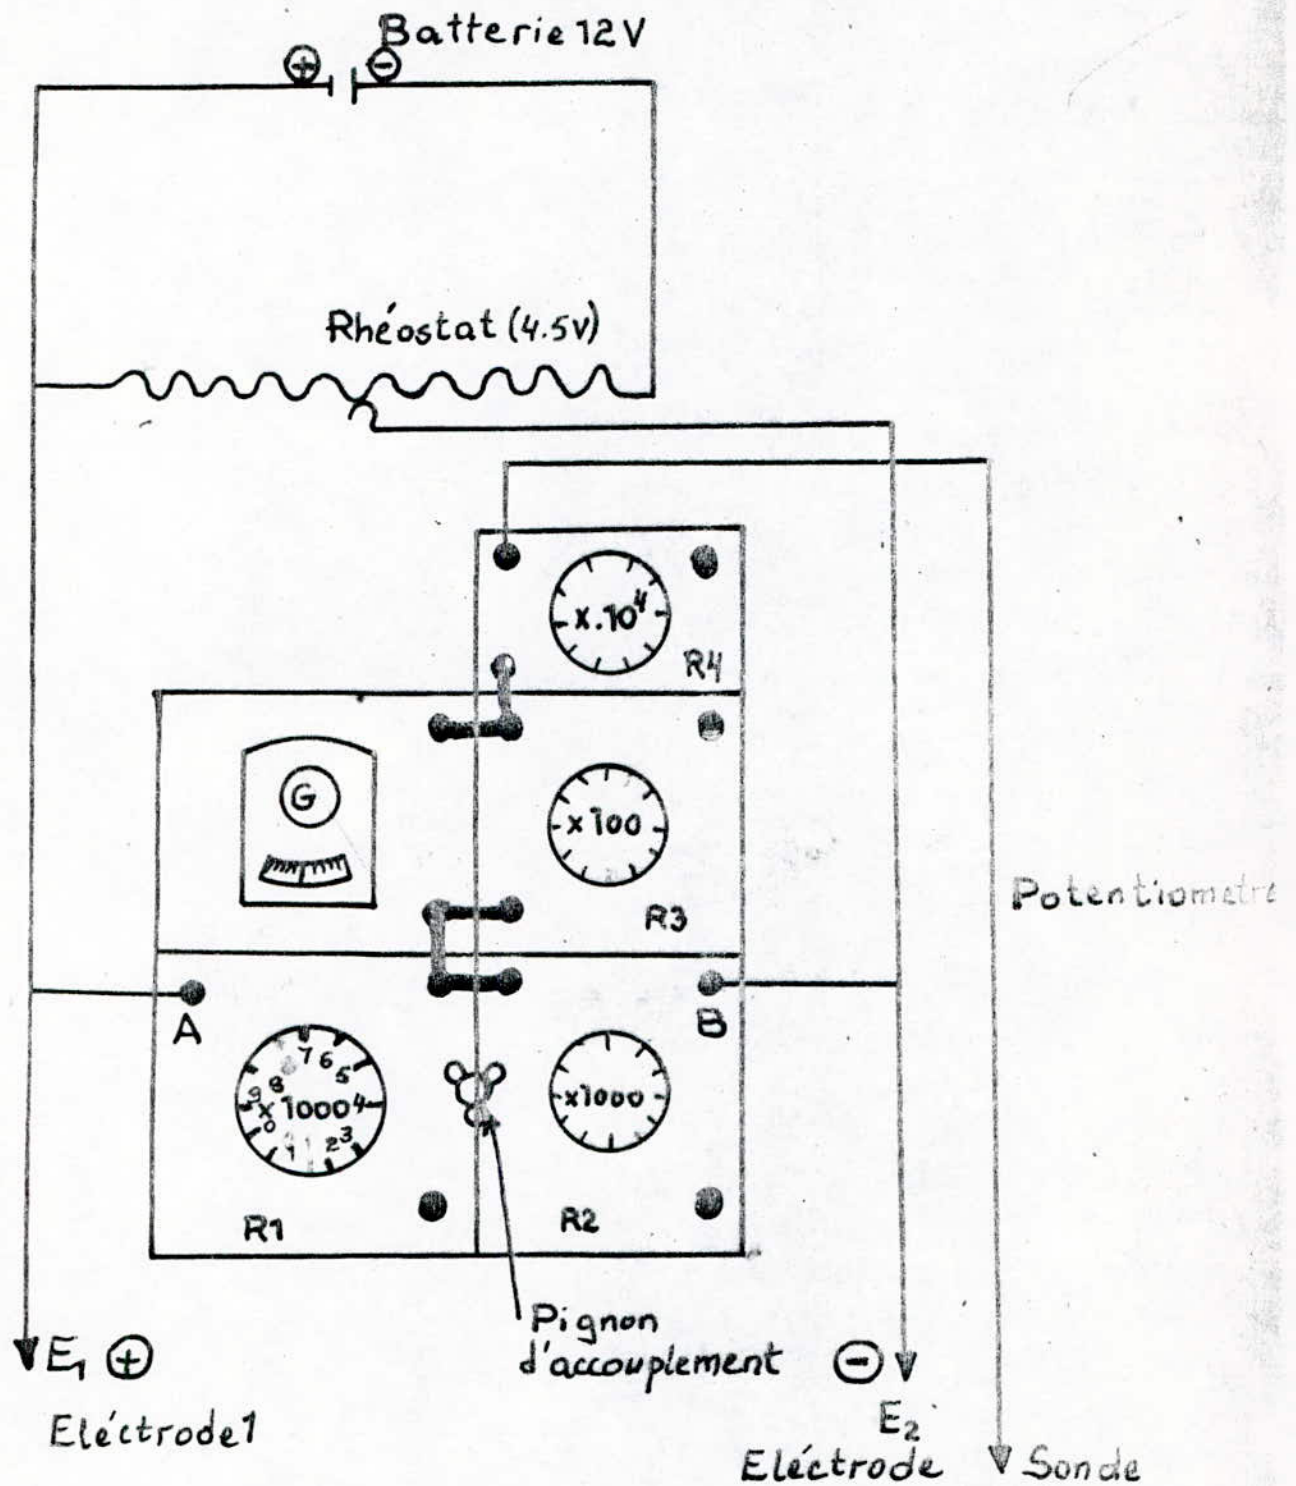 Batterie 12V
⊕ ⊖
Rhéostat (4.5v)
x.10⁴
R4
G
x100
R3
Potentiometre
A
B
7 6
8 5
9 4
x1000
0 3
1 2
x1000
R1
R2
Pignon
d'accouplement
E₁ ⊕
Eléctrode1
⊖
E₂
Eléctrode
Sonde